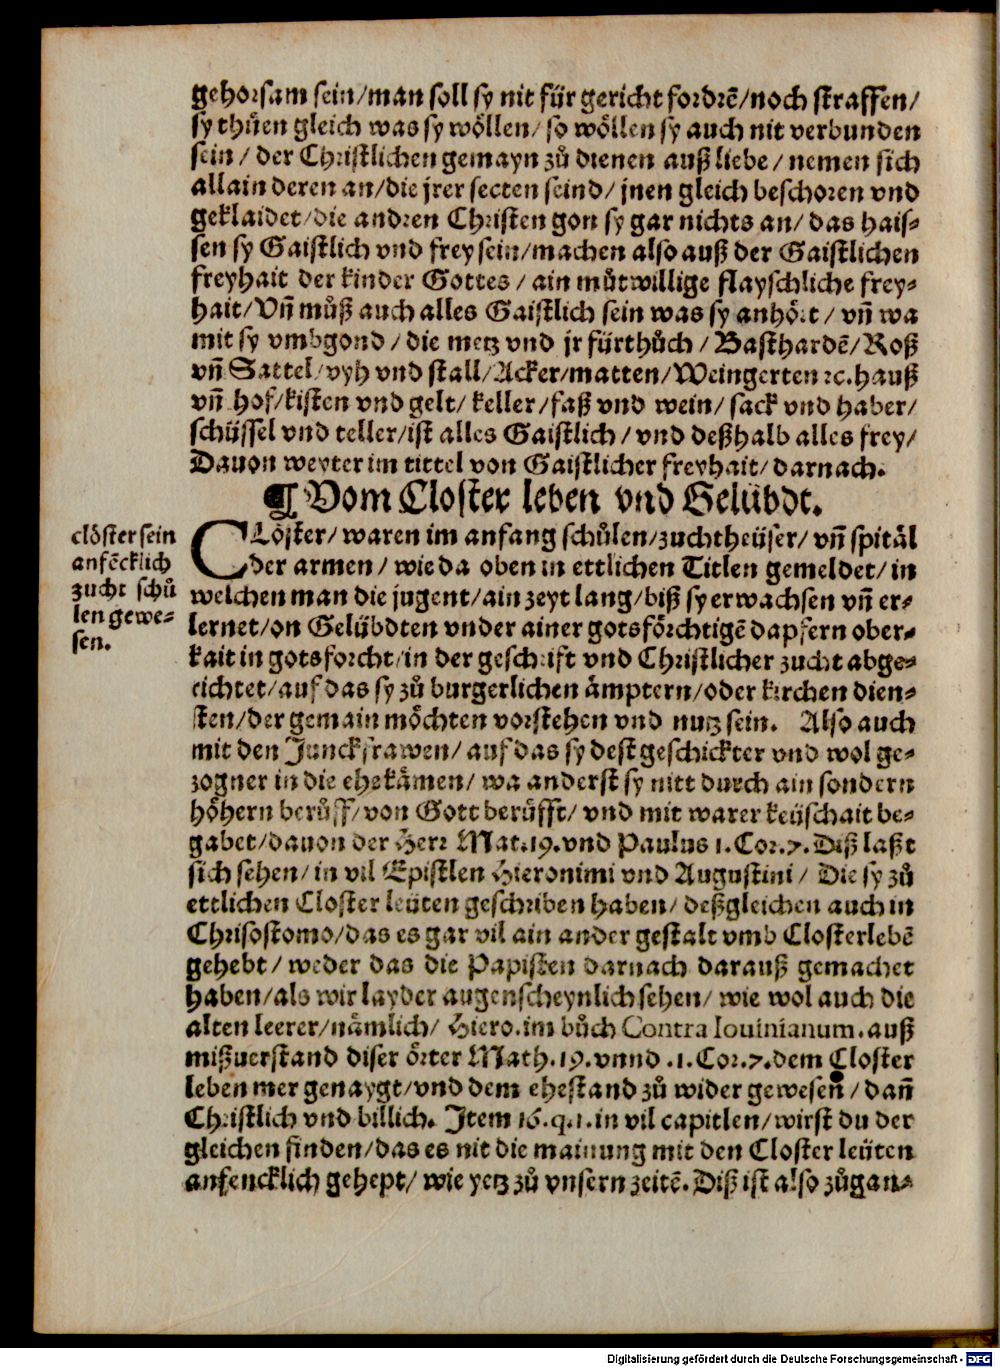 gehorsam sein/man soll sy nit für gericht fordrē/noch straffen/
sy thüen gleich was sy wöllen/ so wöllen sy auch nit verbunden
sein / der Christlichen gemayn zů dienen auß liebe / nemen sich
allain deren an/die jrer secten seind/ jnen gleich beschoren vnd
geklaidet/die andren Christen gon sy gar nichts an/ das hais-
sen sy Gaistlich vnd frey sein/machen also auß der Gaistlichen
freyhait der kinder Gottes / ain můtwillige flayschliche frey-
hait/Vn̄ můß auch alles Gaistlich sein was sy anhört / vn̄ wa
mit sy vmbgond / die metz vnd jr fürthůch / Basthardē/Roß
vn̄ Sattel/vyh vnd stall/Acker/matten/Weingerten ꝛc. hauß
vn̄ hof/kisten vnd gelt/ keller/faß vnd wein/ sack vnd haber/
schüssel vnd teller/ist alles Gaistlich / vnd deßhalb alles frey/
Dauon weyter im tittel von Gaistlicher freyhait/ darnach.
¶ Vom Closter leben vnd Gelübdt.
clöster sein
anfēcklich
zucht schů
len gewe-
sen.
CLöster/ waren im anfang schůlen/zuchtheüser/ vn̄ spitäl
der armen / wie da oben in ettlichen Titlen gemeldet/ in
welchen man die jugent/ain zeyt lang/biß sy erwachsen vn̄ er-
lernet/on Gelübdten vnder ainer gotsförchtigē dapfern ober-
kait in gotsforcht/in der geschrift vnd Christlicher zucht abge-
richtet/auf das sy zů burgerlichen ämptern/oder kirchen dien-
sten/der gemain möchten vorstehen vnd nutz sein. Also auch
mit den Junckfrawen/ auf das sy dest geschickter vnd wol ge-
zogner in die ehe kämen/ wa anderst sy nitt durch ain sondern
höhern berůff/von Gott berüfft/ vnd mit warer keüschait be-
gabet/dauon der Herr Mat.19.vnd Paulus 1.Cor.7.Diß laßt
sich sehen/in vil Epistlen Hieronimi vnd Augustini / Die sy zů
ettlichen Closter leüten geschriben haben/ deßgleichen auch in
Chrisostomo/das es gar vil ain ander gestalt vmb Closterlebē
gehebt / weder das die Papisten darnach darauß gemachet
haben/als wir layder augenscheynlich sehen/ wie wol auch die
alten leerer/nämlich/ Hiero.im bůch Contra Iouinianum.auß
mißuerstand diser örter Math.19.vnnd .1.Cor.7.dem Closter
leben mer genaygt/vnd dem ehestand zů wider gewesen / dan̄
Christlich vnd billich. Item 16.q.1.in vil capitlen/wirst du der
gleichen finden/das es nit die mainung mit den Closter leüten
anfencklich gehept/ wie yetz zů vnsern zeitē.Diß ist also zůgan-
Digitalisierung gefördert durch die Deutsche Forschungsgemeinschaft - DFG